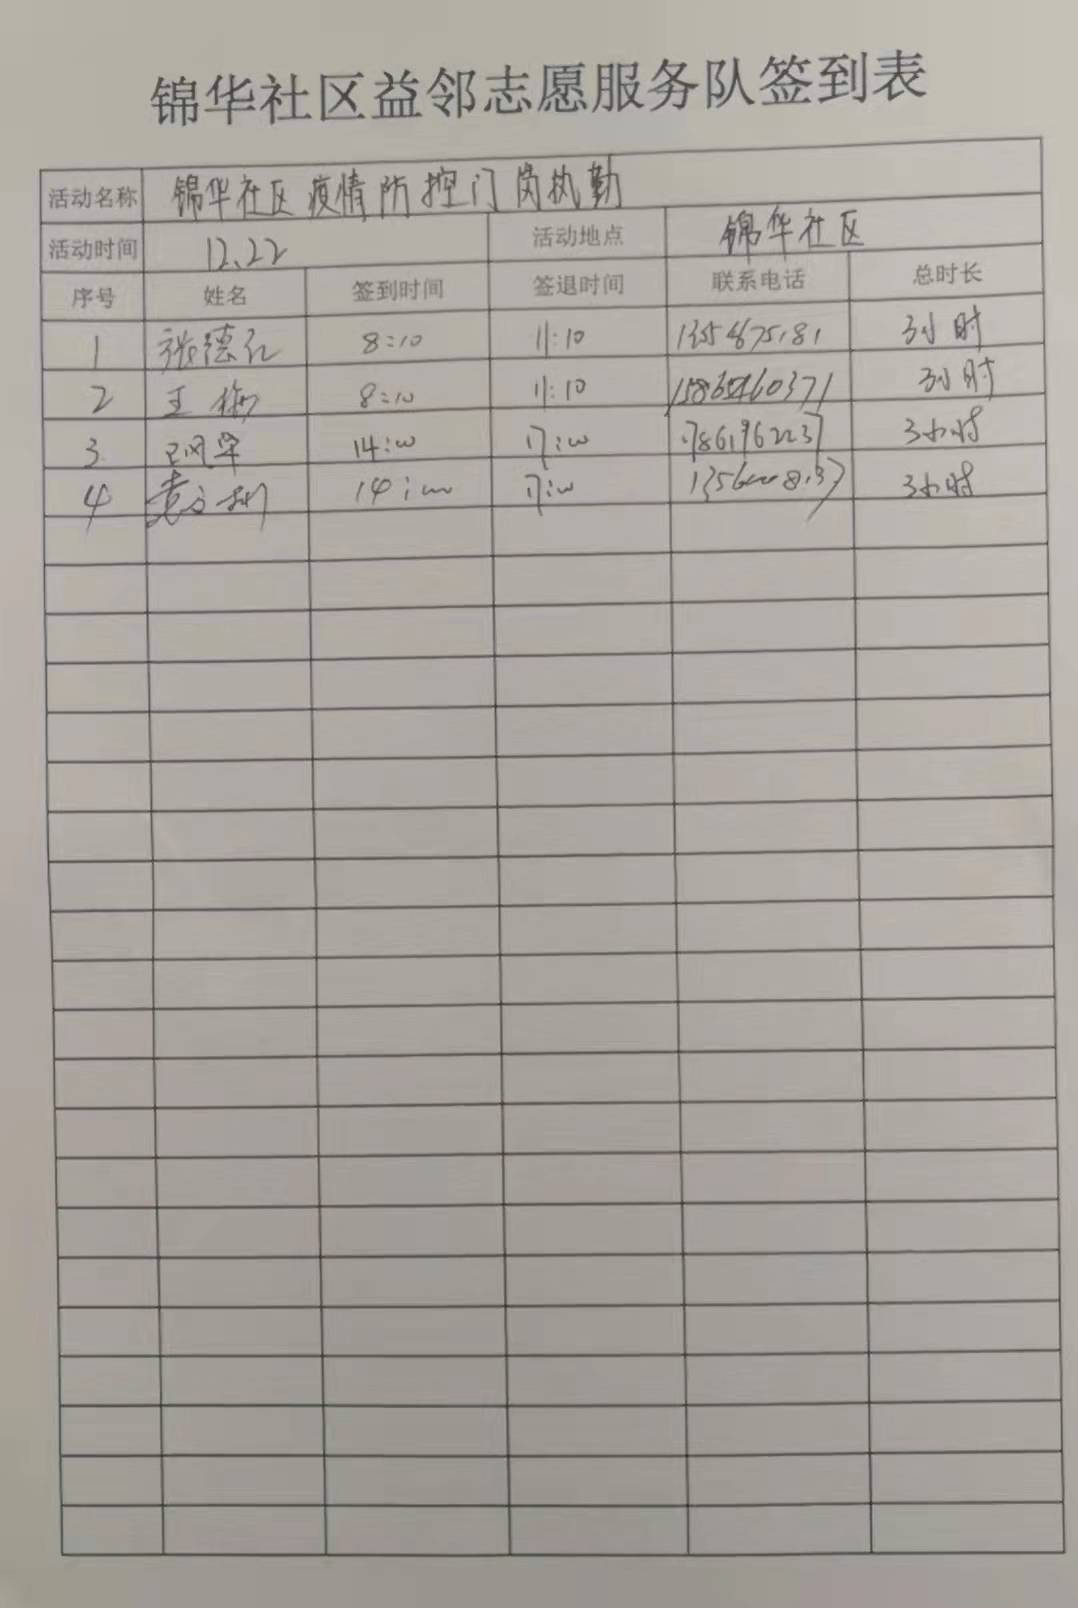 锦华社区益邻志愿服务队签到表
活动名称 锦华社区疫情防控门岗执勤
活动时间 12.22 活动地点 锦华社区
序号 姓名 签到时间 签退时间 联系电话 总时长
1 张德 8:10 11:10 3小时
2 王梅 8:10 11:10 3小时
3 14:00 17:00 3小时
4 14:00 17:00 3小时